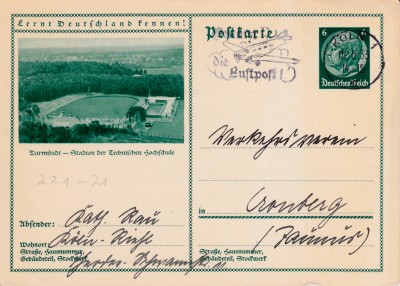 Lernt Deutschland kennen!
Postkarte
6 6
Deutsches Reich
KÖLN 1
die
Luftpost!
Darmstadt – Stadion der Technischen Hochschule
221-21
Verkehrsverein
in Cronberg
(Taunus)
Straße, Hausnummer,
Gebäudeteil, Stockwerk
Absender: Kath. Rau
Wohnort Köln-Riehl
Straße, Hausnummer,
Gebäudeteil, Stockwerk